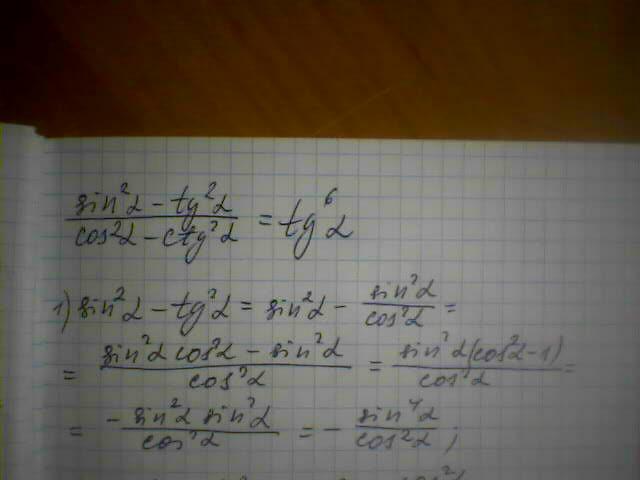 (sin²α − tg²α)/(cos²α − ctg²α) = tg⁶α
1) sin²α − tg²α = sin²α − sin²α/cos²α =
= (sin²α cos²α − sin²α)/cos²α = sin²α(cos²α − 1)/cos²α =
= (−sin²α sin²α)/cos²α = − sin⁴α/cos²α ;